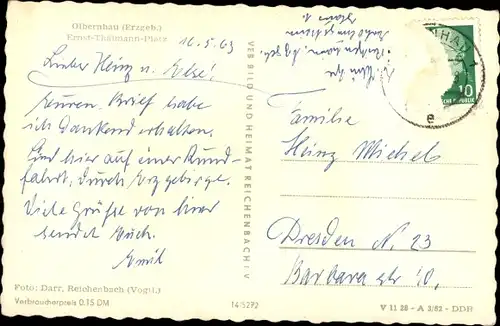 Olbernhau (Erzgeb.)
Ernst-Thälmann-Platz
16.5.63
Lieber Heinz u. Else!
Euren Brief habe
ich Dankend erhalten.
Sind hier auf einer Rund-
fahrt, durch Erzgebirge.
Viele Grüße von hier
sendet Euch.
Emil
Foto: Darr, Reichenbach (Vogtl.)
Verbraucherpreis 0.15 DM
VEB BILD UND HEIMAT REICHENBACH i. V.
14/5292
10
e
Familie
Heinz Michels
Dresden N. 23
Barbara str 10,
V 11 28 - A 2/62 - DDR